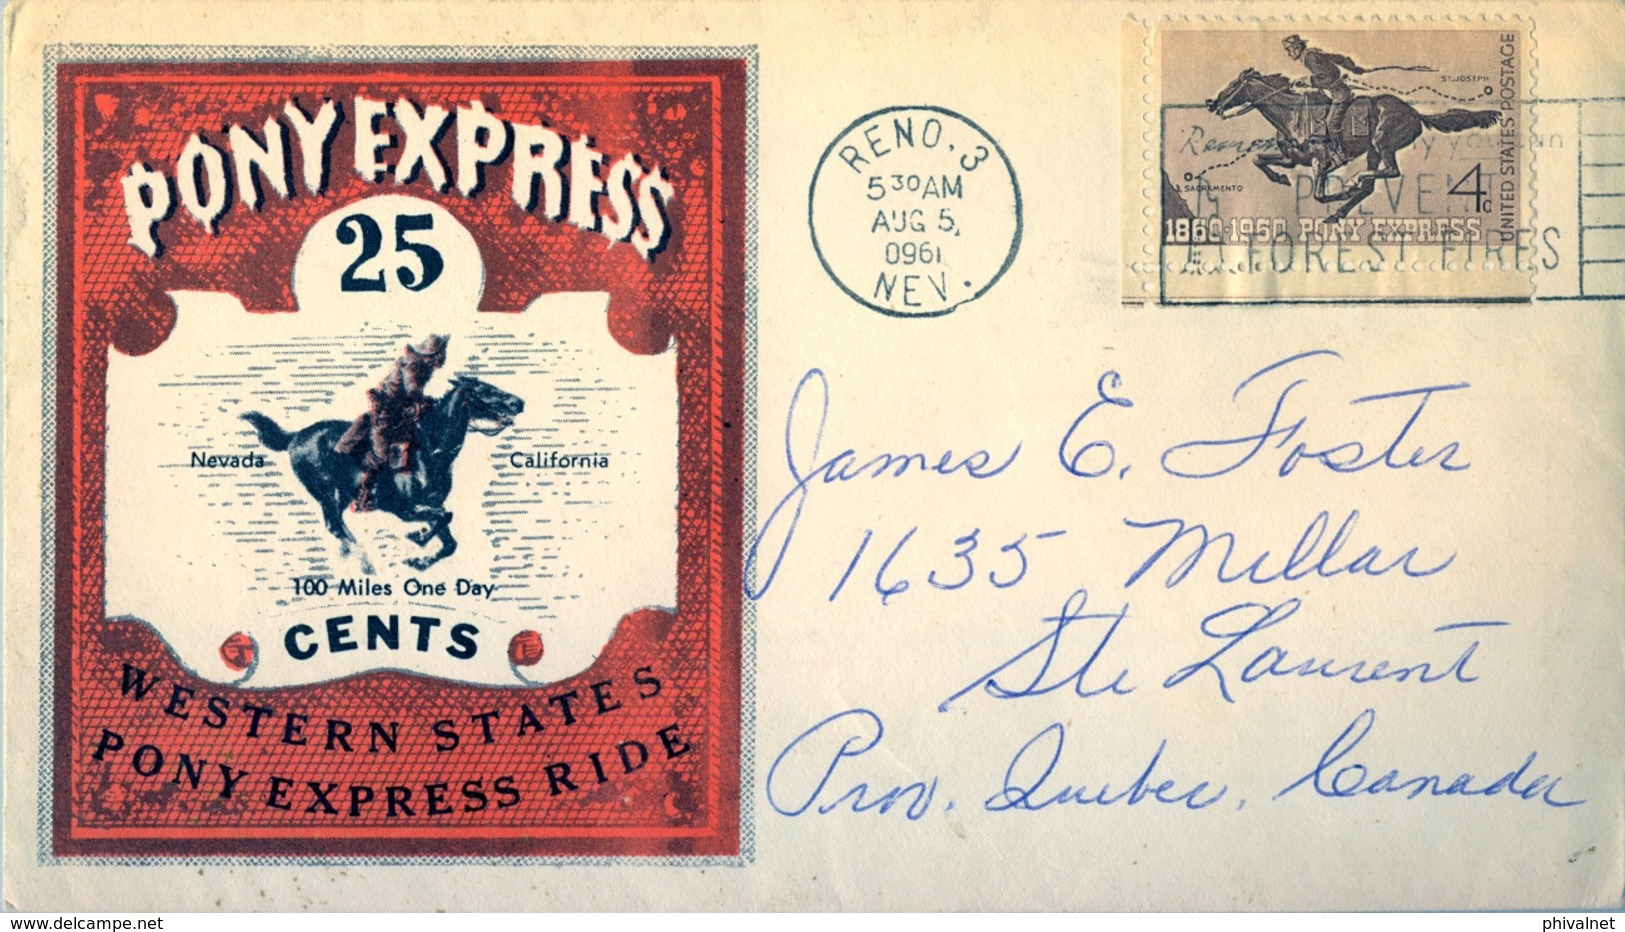 PONY EXPRESS
25
Nevada
California
100 Miles One Day
CENTS
WESTERN STATES
PONY EXPRESS RIDE
RENO, 3
5 30 AM
AUG 5,
0961
NEV.
ST. JOSEPH
SACRAMENTO
4c
1860-1960 PONY EXPRESS
UNITED STATES POSTAGE
only you can
PREVENT
FOREST FIRES
James E. Foster
1635 Millar
Ste Laurent
Prov. Quebec, Canada
delcampe.net
phivalnet